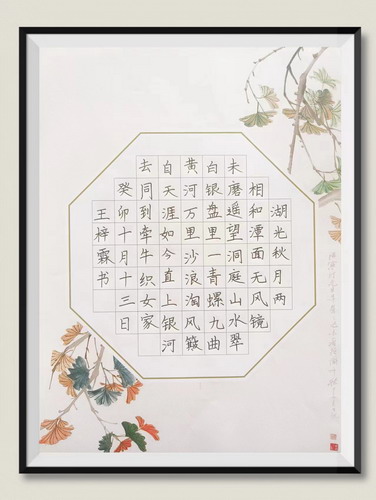 湖光秋月两
相和潭面无风镜
未磨遥望洞庭山水翠
白银盘里一青螺九曲
黄河万里沙浪淘风簸
自天涯如今直上银河
去同到牵牛织女家
癸卯十月十三日
王梓霖书